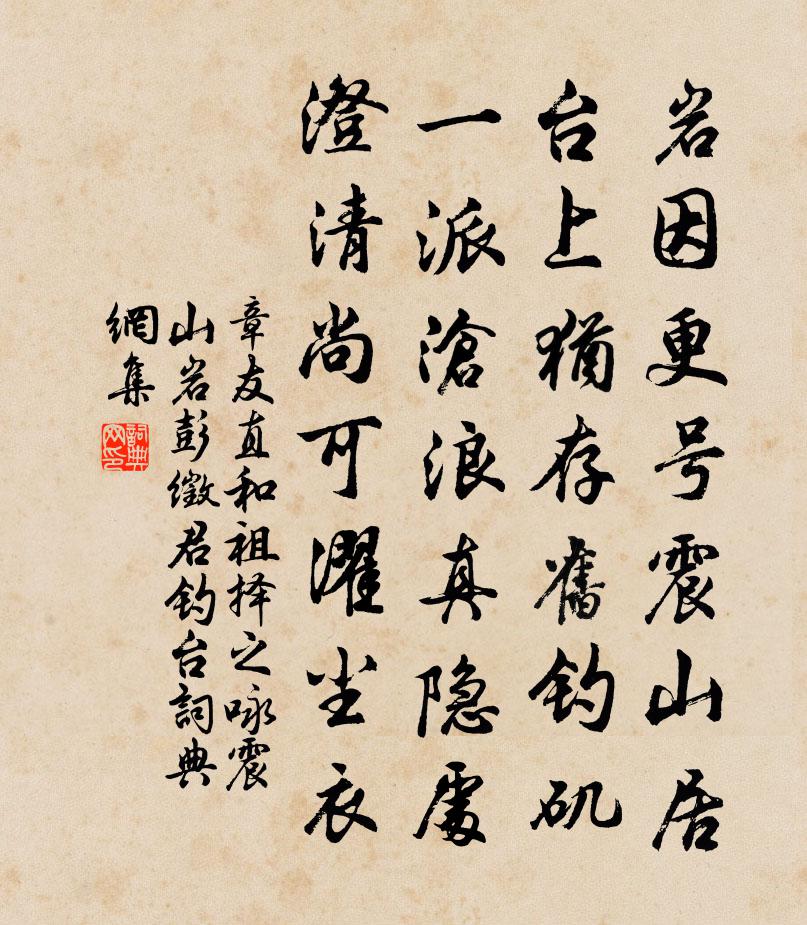 岩因更号震山居
台上犹存舊钓矶
一派滄浪真隐處
澄清尚可濯尘衣
章友直和祖择之咏震
山岩彭徵君钓台詞典
網集
詞典
网印